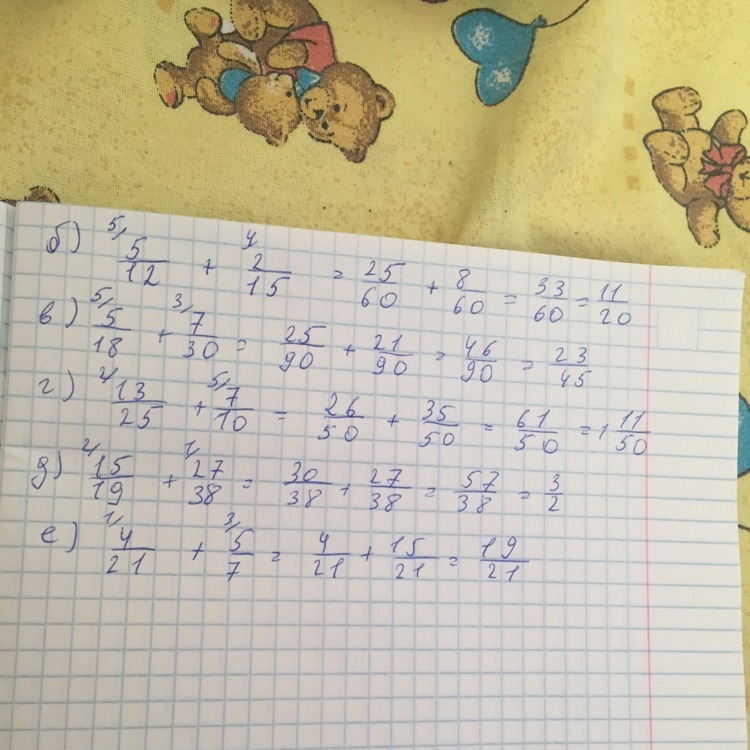 б) 5/ 5/12 + 4 2/15 = 25/60 + 8/60 = 33/60 = 11/20
в) 5/ 5/18 + 3/ 7/30 = 25/90 + 21/90 = 46/90 = 23/45
г) 2/ 13/25 + 5/ 7/10 = 26/50 + 35/50 = 61/50 = 1 11/50
д) 2/ 15/19 + 1/ 27/38 = 30/38 + 27/38 = 57/38 = 3/2
е) 1/ 4/21 + 3/ 5/7 = 4/21 + 15/21 = 19/21